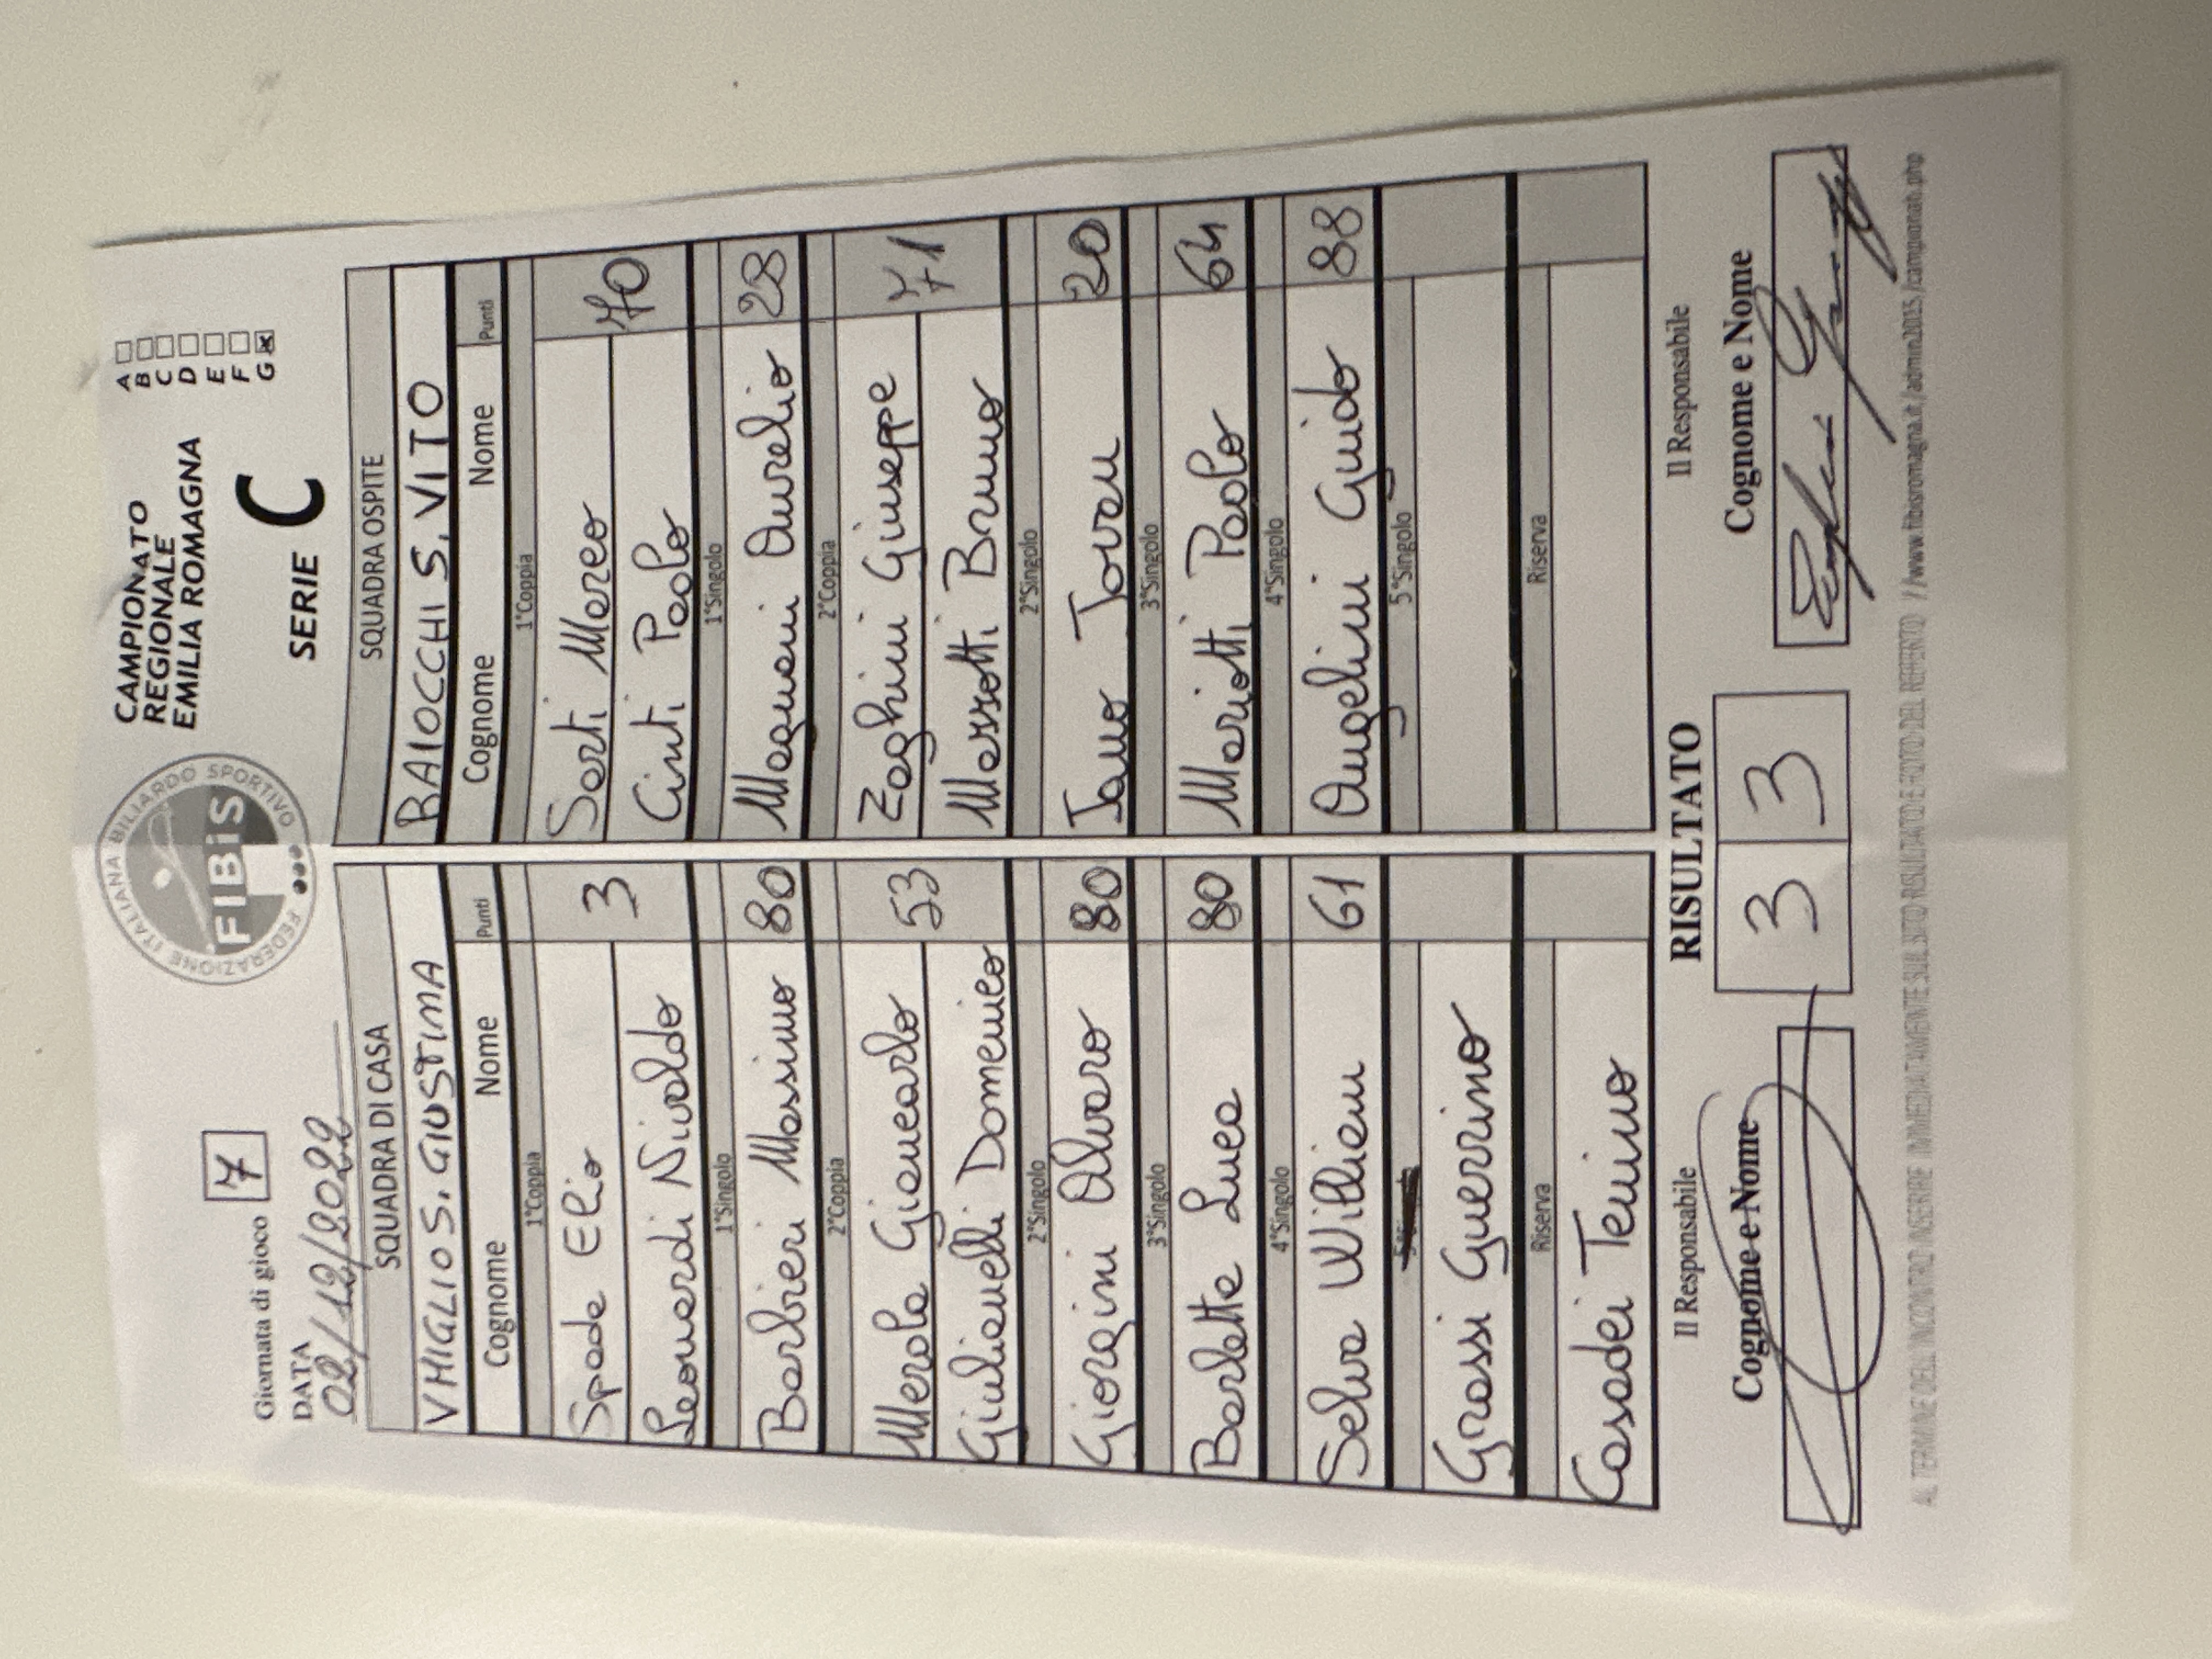 Giornata di gioco 7
DATA
02/12/2022
FEDERAZIONE ITALIANA BILIARDO SPORTIVO
FIBiS
CAMPIONATO
REGIONALE
EMILIA ROMAGNA
SERIE C
A
B
C
D
E
F
G x
SQUADRA DI CASA
VMIGLIO S. GIUSTINA
Cognome Nome Punti
1°Coppia
Spada Elio
3
Leonardi Nivaldo
1°Singolo
Barbieri Massimo 80
2°Coppia
Merola Giancarlo
53
Giulianelli Domenico
2°Singolo
Giorgini Alvaro 80
3°Singolo
Barletta Luca 80
4°Singolo
Selva William 61
Grassi Guerrino
Riserva
Casadei Tonino
SQUADRA OSPITE
BAIOCCHI S. VITO
Cognome Nome Punti
1°Coppia
Sarti Marco
70
Cinti Paolo
1°Singolo
Magnani Aurelio 28
2°Coppia
Zaghini Giuseppe
71
Massotti Bruno
2°Singolo
Tano Jovan 20
3°Singolo
Mariotti Paolo 64
4°Singolo
Angelini Guido 88
5°Singolo
Riserva
Il Responsabile
Cognome e Nome
RISULTATO
3 3
Il Responsabile
Cognome e Nome
AL TERMINE DELL'INCONTRO INSERIRE IMMEDIATAMENTE SUL SITO RISULTATO E FOTO DEL REFERTO //www.fibisromagna.it/admin2015/campionati.php